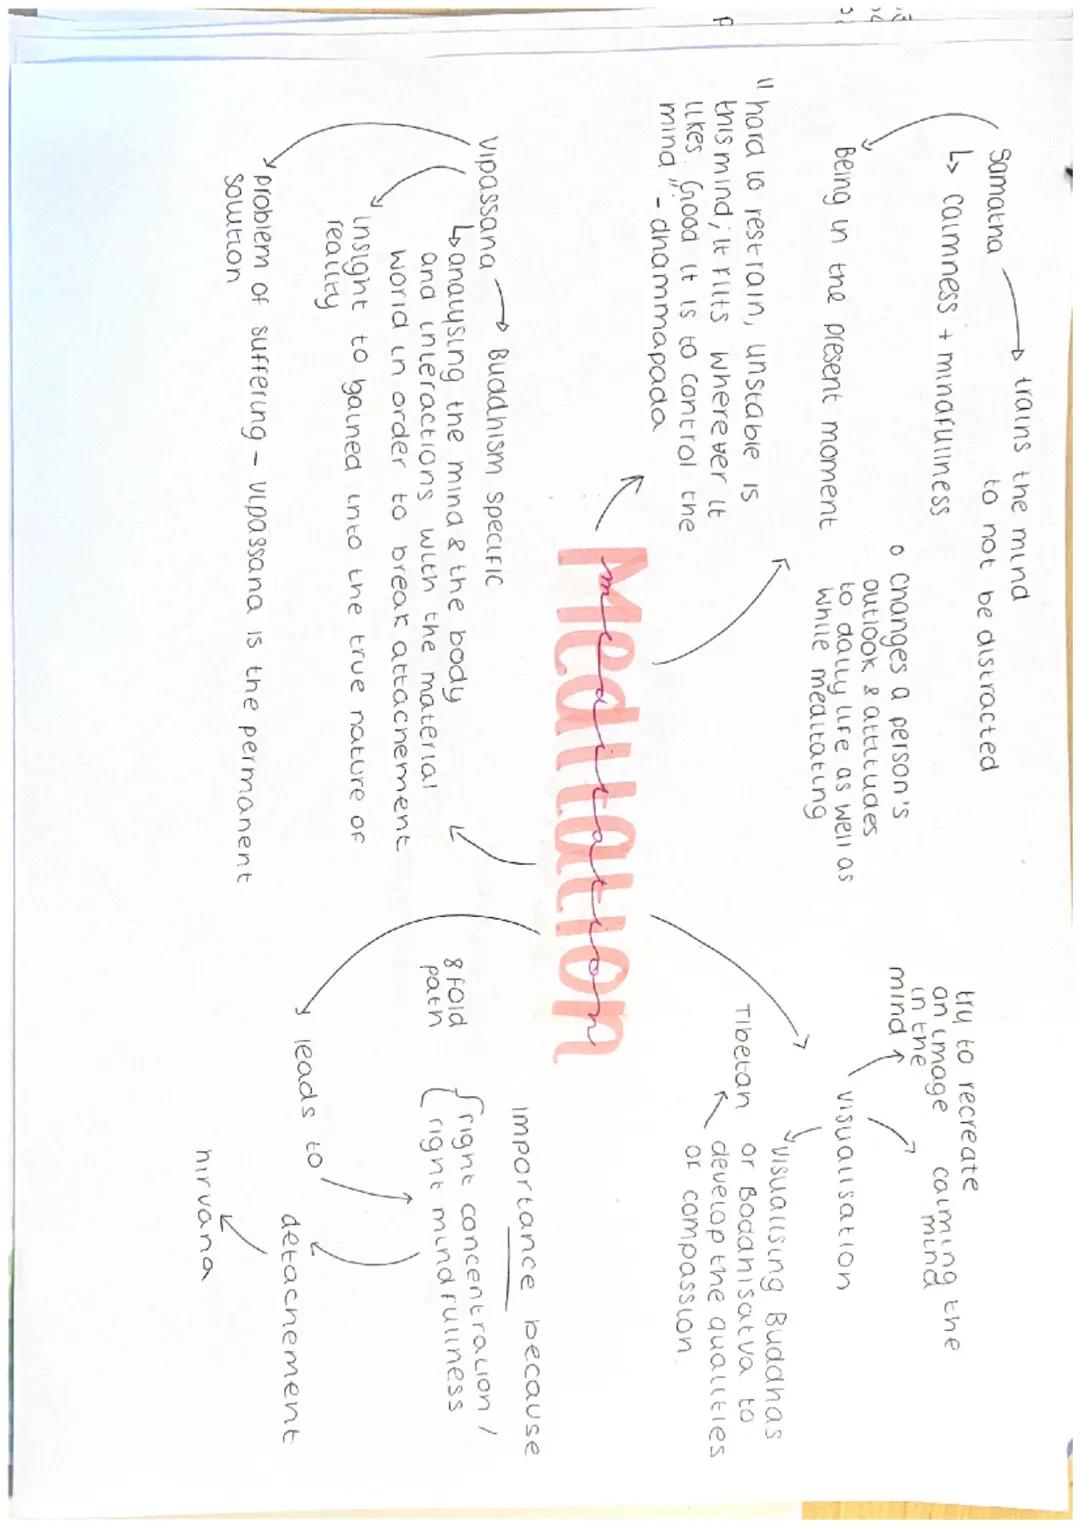 Samatha → trains the mind
to not be distracted
↳ calmness + mindfullness
Being in the present moment
o Changes a person's
outlook & attitudes
to daily life as well as
while meditating
"hard to restrain, unstable is
this mind; it flits wherever it
likes. Good it is to control the
mind" - dhammapada
Meditation
meditation
Vipassana → Buddhism specific
↳ analysing the mind & the body
and interactions with the material
world in order to break attachement
insight to gained into the true nature of
reality
problem of suffering - vipassana is the permanent
solution
try to recreate
an image
in the
mind
calming the
mind
visualisation
Tibetan
visualising Buddhas
or Boddhisatva to
develop the qualities
of compassion.
Importance because
8 fold
path
{ right concentration /
right mindfullness
leads to
detachement
nirvana